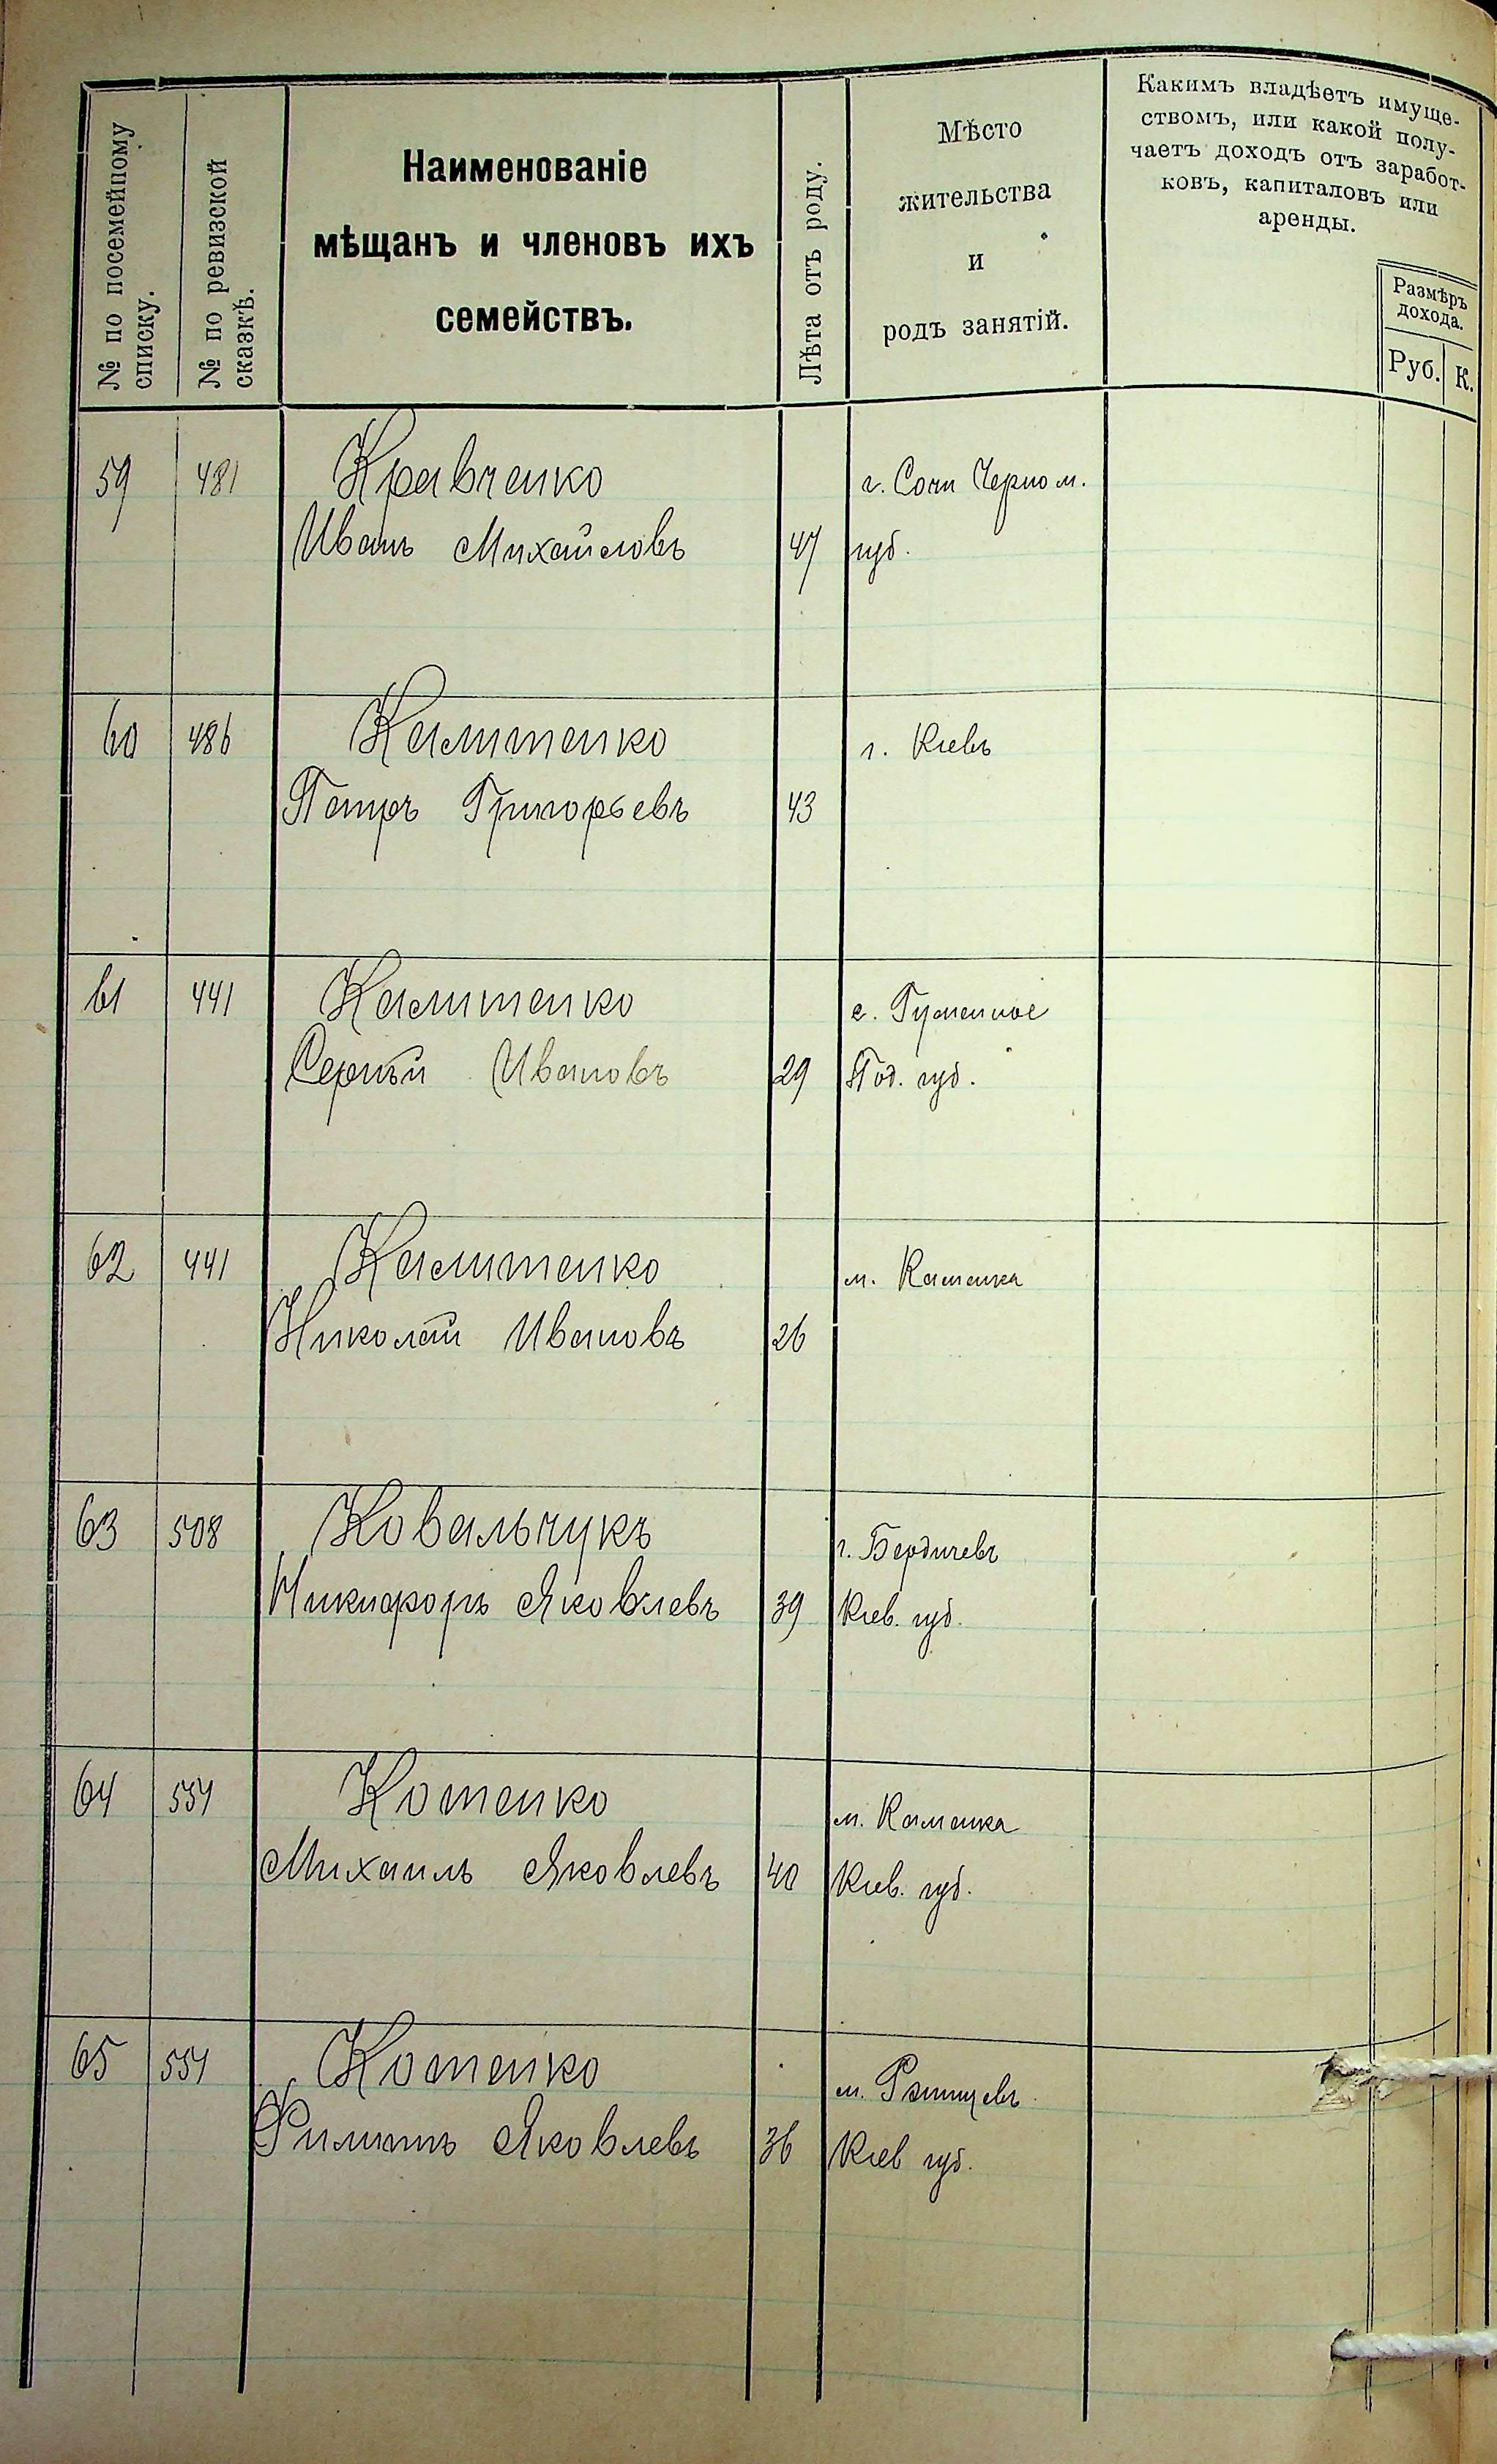 № по посемейному
списку.
№ по ревизской
сказкѣ.
Наименованіе
мѣщанъ и членовъ ихъ
семействъ.
Лѣта отъ роду.
Мѣсто
жительства
и
родъ занятій.
Какимъ владѣетъ имуще-
ствомъ, или какой полу-
чаетъ доходъ отъ заработ-
ковъ, капиталовъ или
аренды.
Размѣръ
дохода.
Руб. К.
59 481 Кравченко г. Сочи Черном.
Иванъ Михайловъ 47 губ.
60 486 Калитенко г. Кіевъ
Петръ Григорьевъ 43
61 441 Калитенко с. Гуменное
Сергѣй Ивановъ 29 Под. губ.
62 441 Калитенко м. Каменка
Николай Ивановъ 26
63 508 Ковальчукъ г. Бердичевъ
Никифоръ Яковлевъ 39 Кіев. губ.
64 554 Котенко м. Каменка
Михаилъ Яковлевъ 40 Кіев. губ.
65 554 Котенко м.
Филиппъ Яковлевъ 36 Кіев губ.